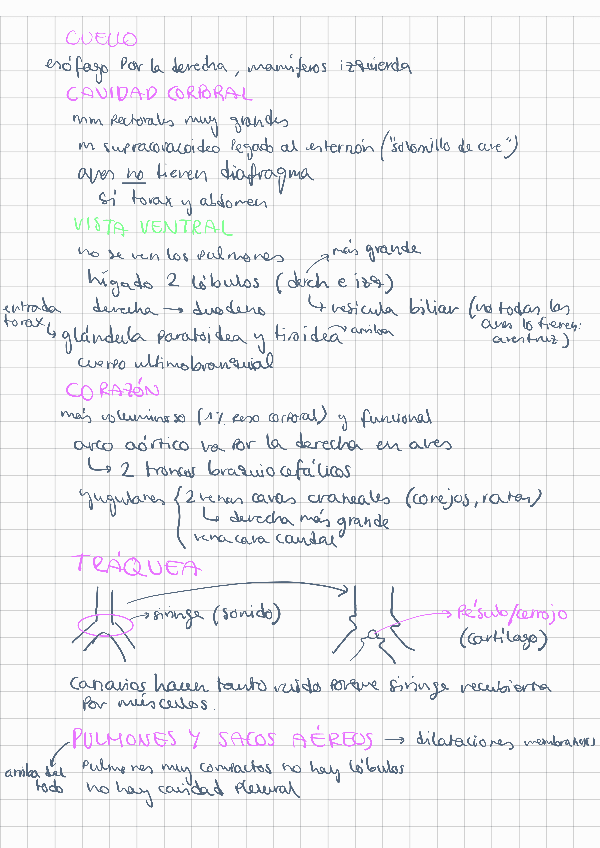 CUELLO
esófago por la derecha, mamíferos izquierda
CAVIDAD CORPORAL
mm pectorales muy grandes
m supracoracoideo pegado al esternón ("solomillo de ave")
aves no tienen diafragma
sí torax y abdomen
VISTA VENTRAL
no se ven los pulmones
más grande
hígado 2 lóbulos (derch e izq)
derecha → duodeno
↳ vesícula biliar (no todas las aves lo tienen: avestruz)
entrada torax
↳ glándula paratoidea y tiroidea → arriba
cuerpo ultimobranquial
CORAZÓN
más voluminoso (1% peso corporal) y funcional
arco aórtico va por la derecha en aves
↳ 2 troncos braquiocefálicos
yugulares { 2 venas cavas craneales (conejos, ratas)
↳ derecha más grande
vena cava caudal
TRÁQUEA
→ siringe (sonido)
Pésulo/cerrojo
(cartílago)
Canarios hacen tanto ruido porque siringe recubierta
por músculos.
PULMONES Y SACOS AÉREOS → dilataciones membranosas
arriba del todo
pulmones muy compactos no hay lóbulos
no hay cavidad pleural